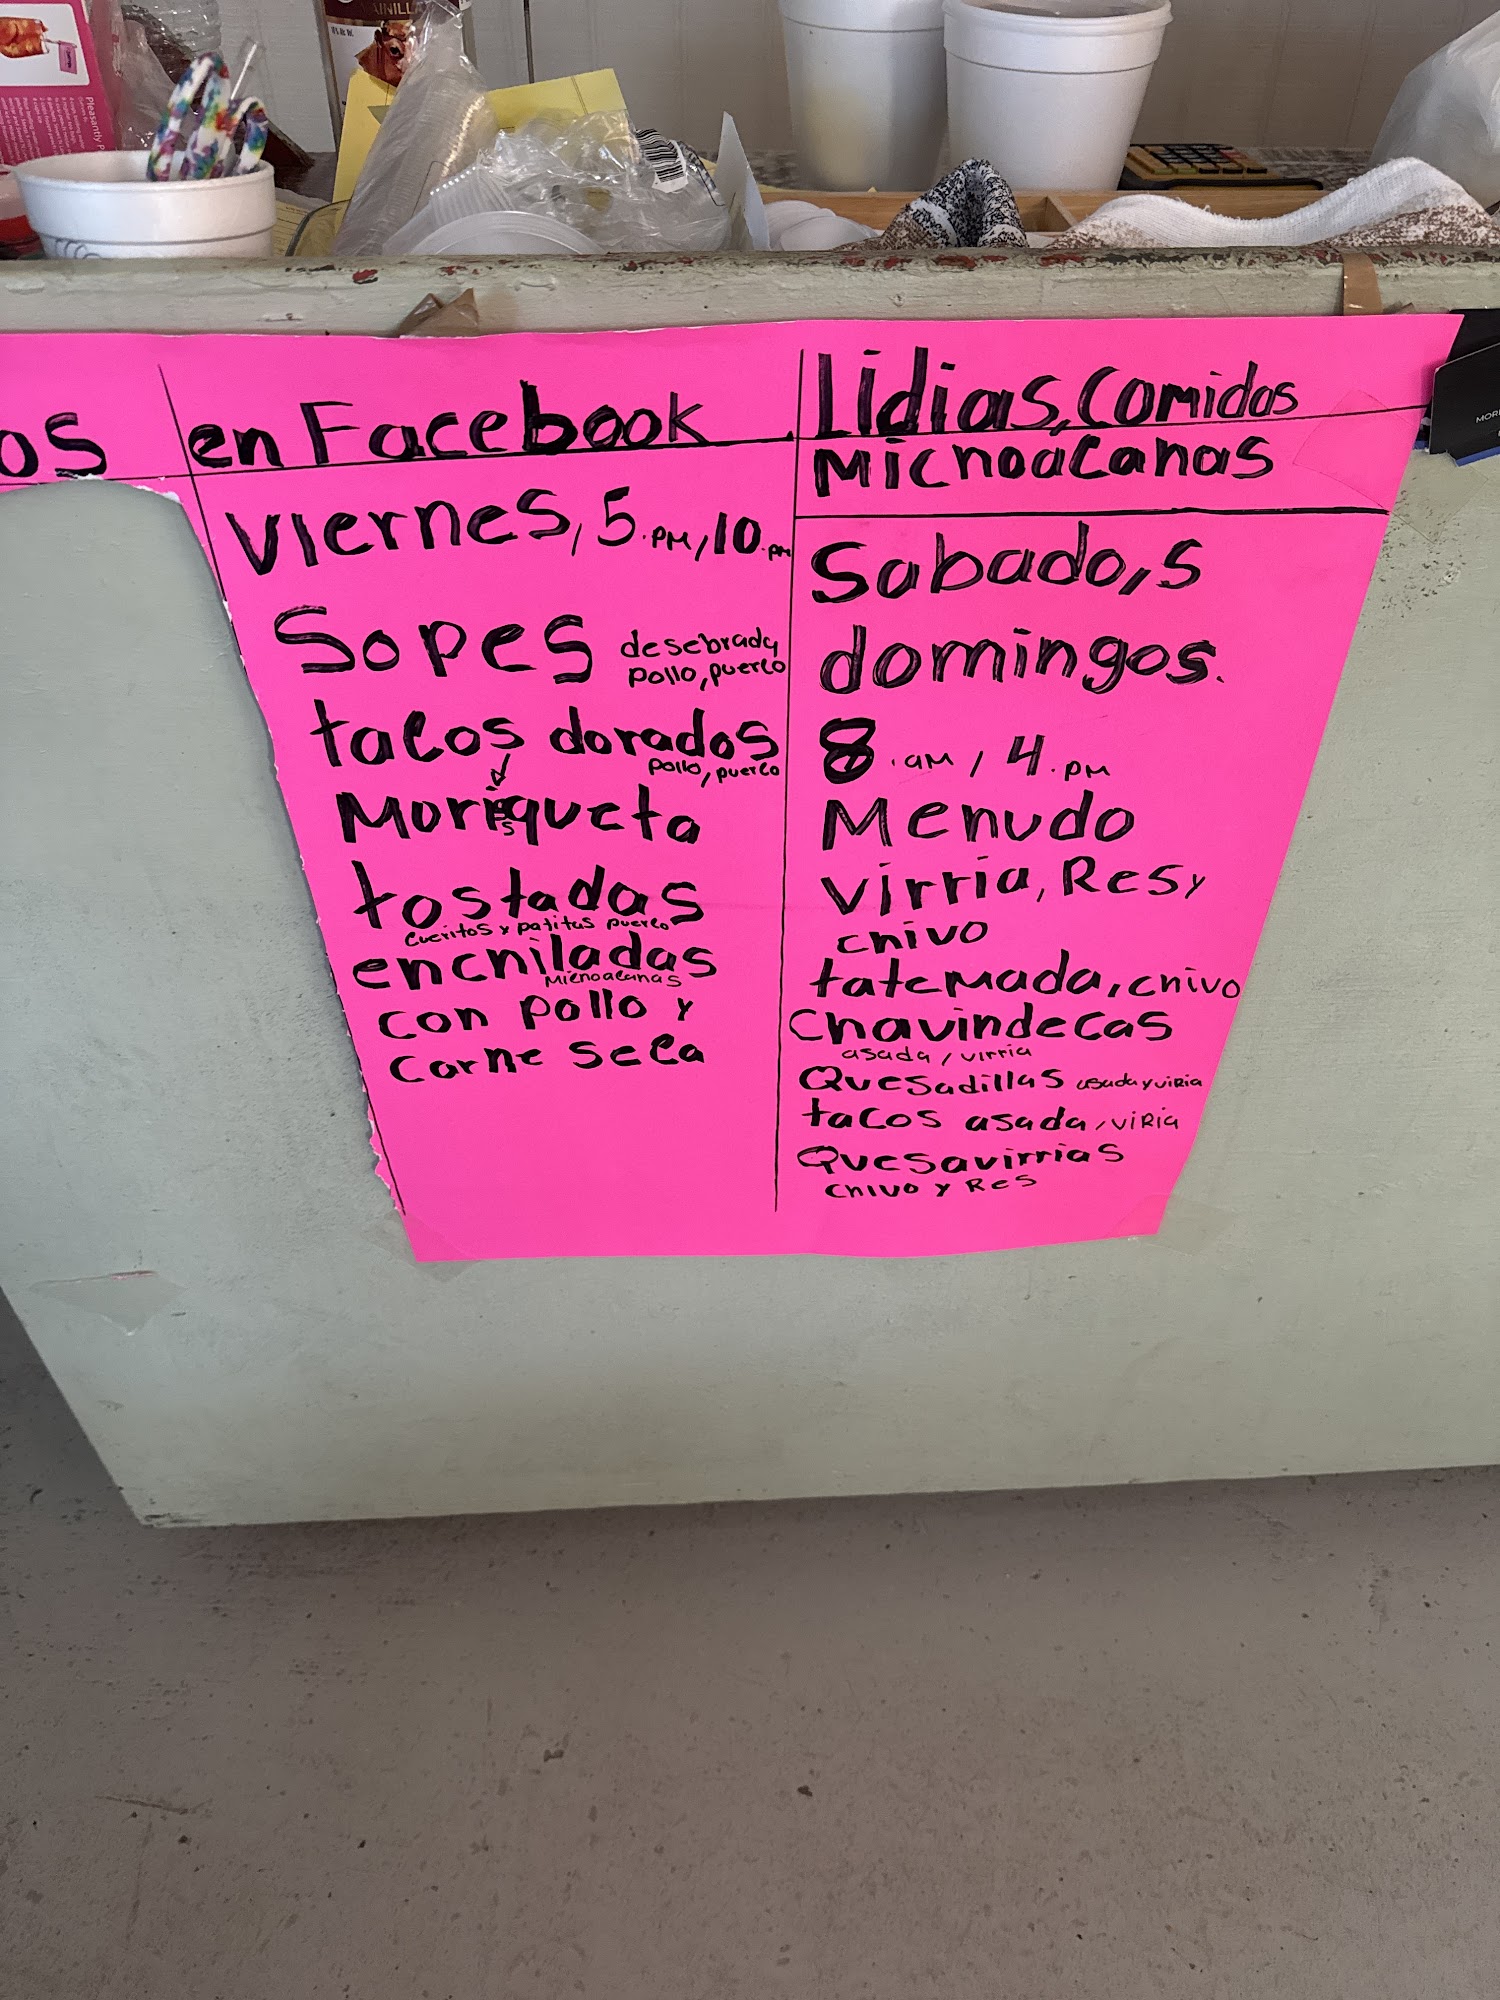 os
en Facebook
Viernes, 5.PM, 10.PM
Sopes desebrada
pollo, puerco
tacos dorados
pollo, puerco
Moriqueta
tostadas
cueritos y patitas puerco
enchiladas
Michoacanas
con pollo y
Carne seca
Lidias, Comidas
Michoacanas
Sabado,s
domingos.
8.am / 4.pm
Menudo
virria, Res y
chivo
tatemada, chivo
Chavindecas
asada / virria
Quesadillas asada y viria
tacos asada, viria
Quesavirrias
chivo y Res
Pleasantly